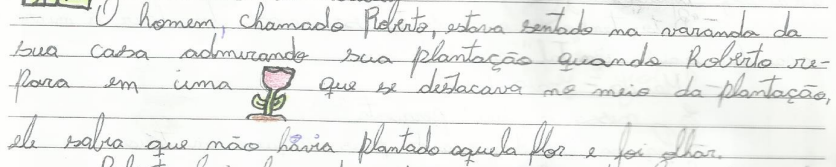 O homem, chamado Roberto, estava sentado na varanda da
sua casa admirando sua plantação quando Roberto re-
para em uma que se destacava no meio da plantação,
ele sabia que não havia plantado aquela flor e foi olhar.